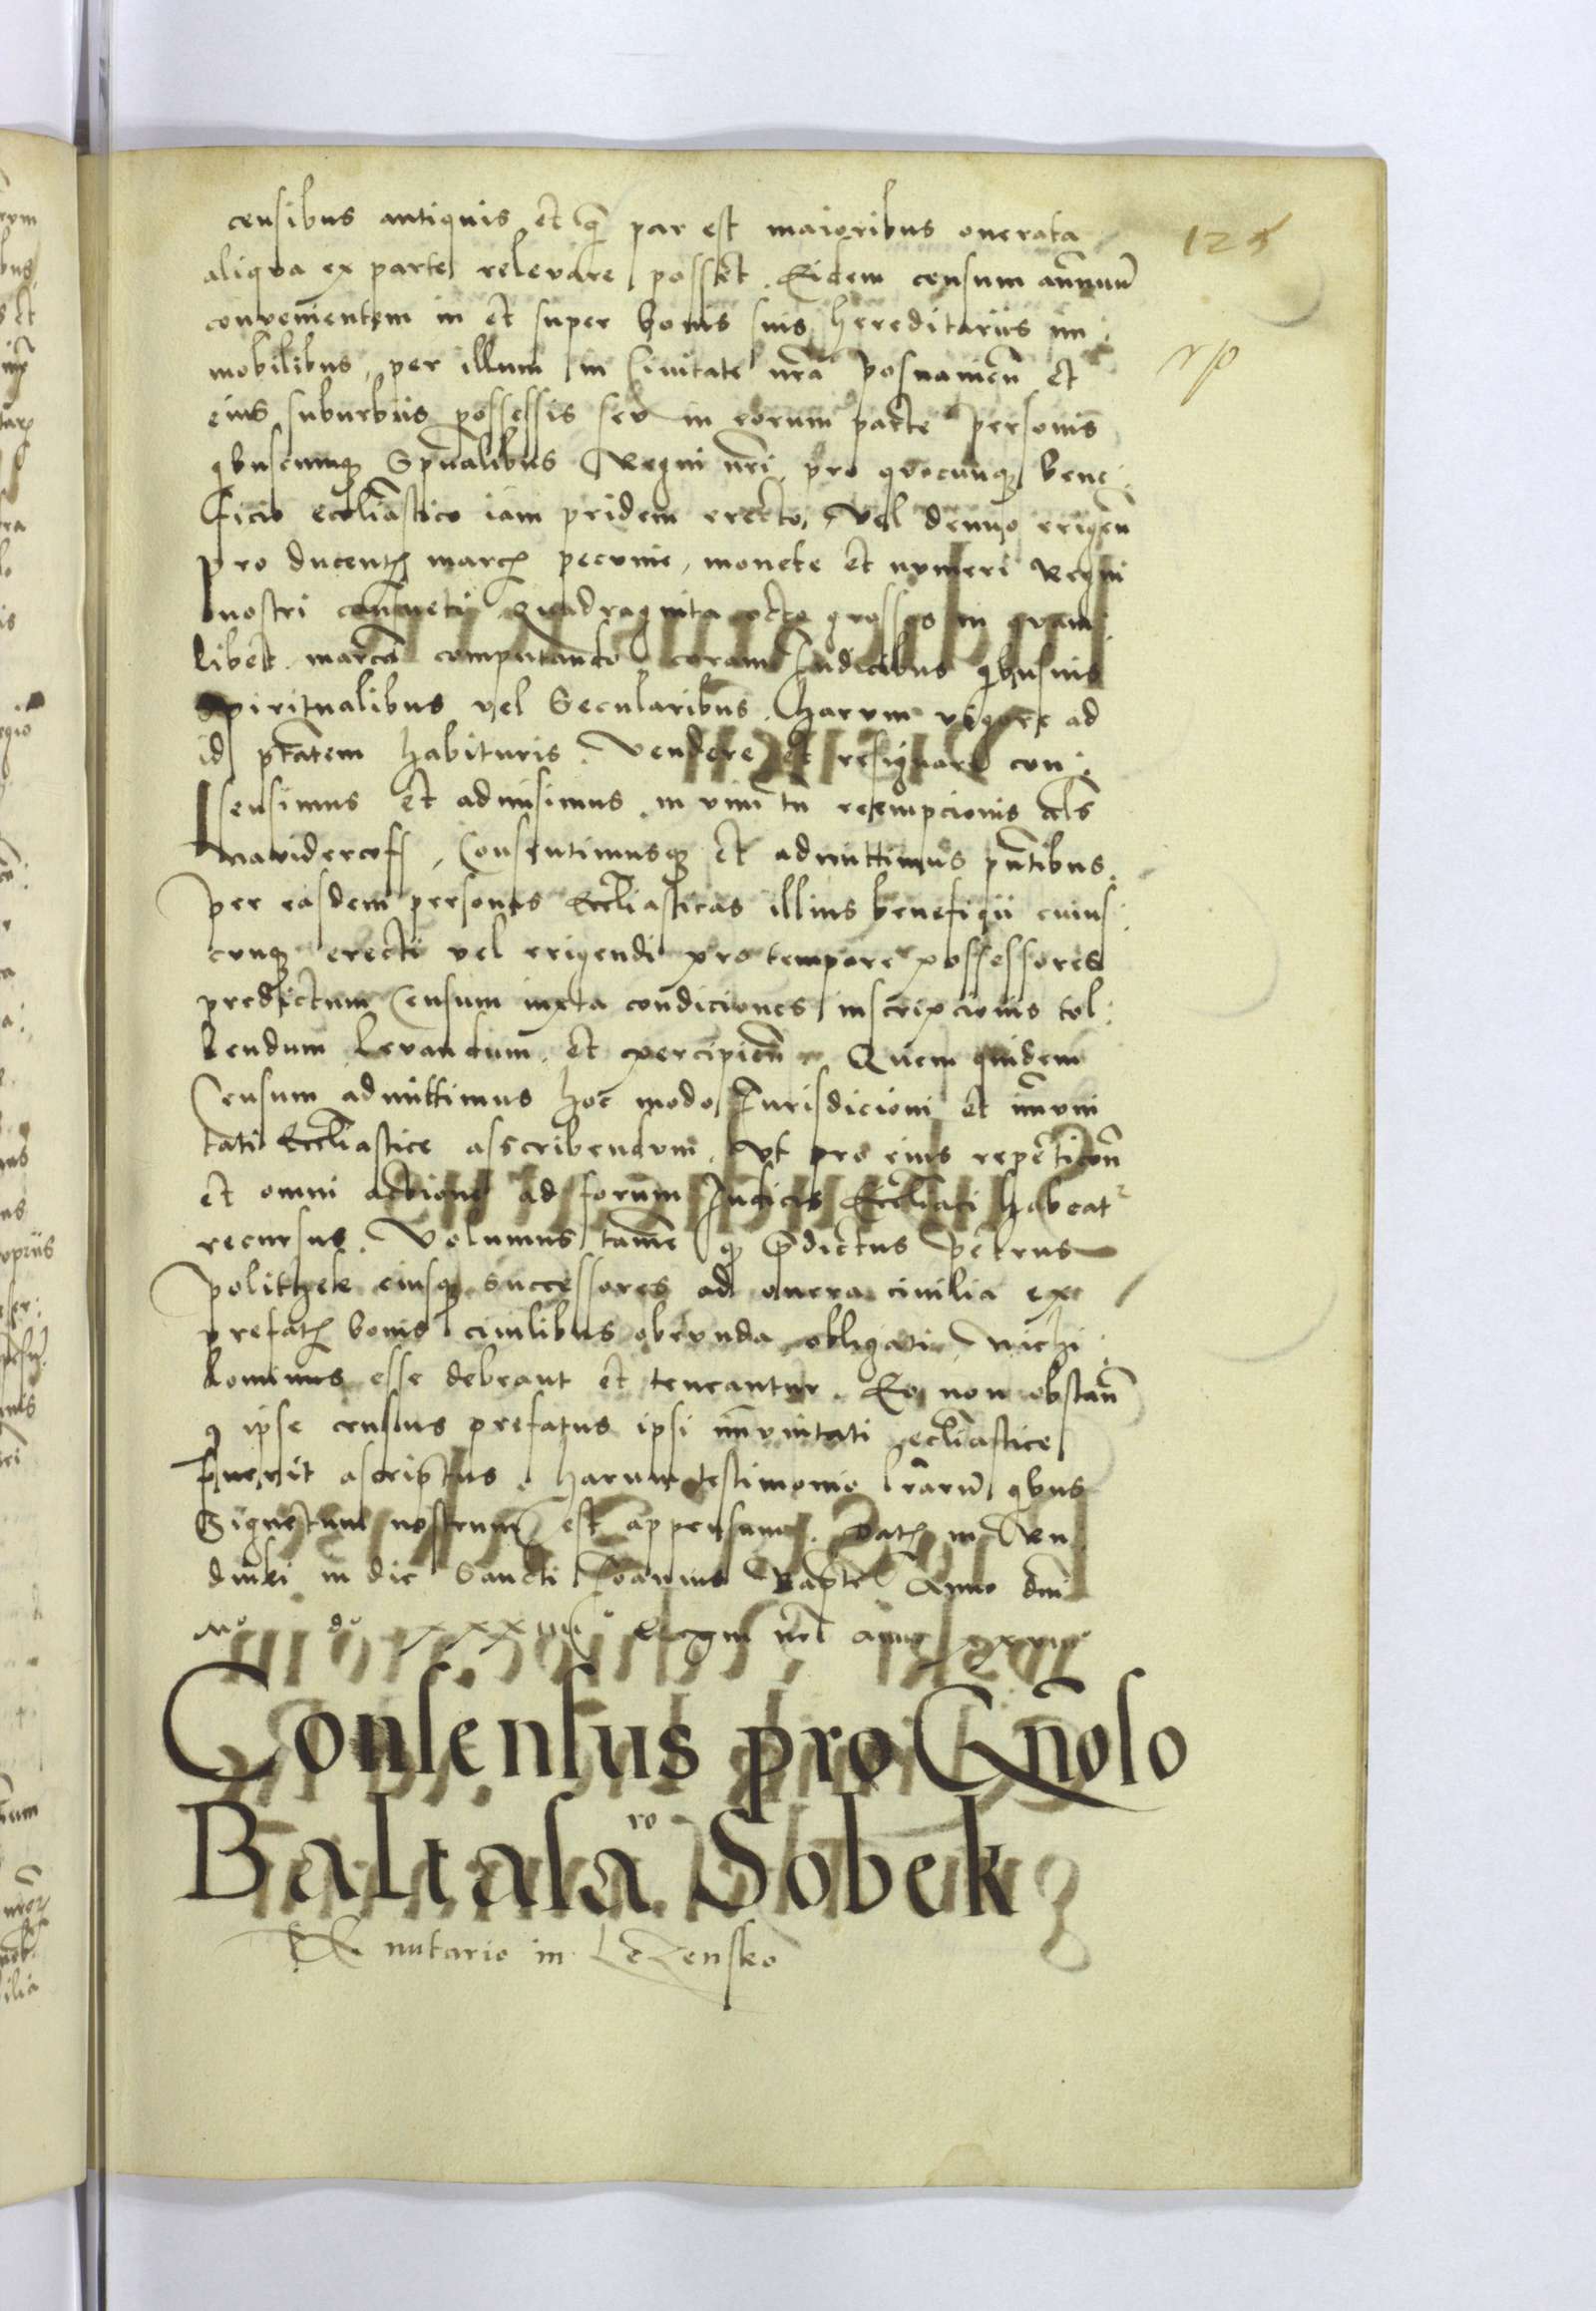 125
censibus antiquis et q̄ par est maioribus onerata
aliqua ex parte relevare posset. Eidem censum annuu̅
convenientem in et super bonis suis hereditariis im:
mobilibus, per illum in Civitate nr̄a Posnanien̄ et
rp
eius suburbiis possessis seu in eorum parte personis
qbuscumq̨ Spūalibus Regni nr̄i, pro quocunq̨ bene:
ficio eccliāstico iam pridem erecto, vel denuo erigen̄
pro ducentꝭ marcꝭ pecunie, monete et numeri Regni
nostri consueti quadraginta octo grossos in quam:
libet marcā computando, coram Iudicibus qbusvis
Spiritualibus vel Secularibus, harum vigore ad
id ptātem habituris. Vendere et resignare con:
sensimus et admisimus, in vim tn̄ reempcionis als̄
naviderkoff, Consentimusq̨ et admittimus pn̄tibus
per easdem personas Eccliāsticas illius beneficii cuius:
cunq̨ erecti vel erigendi pro tempore possessores
predictum Censum iuxta condiciones inscripcionis tol:
lendum levandum, et percipien̄. Quem quidem
Censum admittimus hoc modo Iurisdicioni et im̄uni
tati Eccliāstice asscribendum, Vt pro eius repeticōn̄
et omni actione ad forum Iudicis Eccliāci habeat²
recursus. Volumus tamē q̨ p̄dictus Petrus
Polithek eiusq̨ successores ad onera civilia ex
prefatꝭ bonis civilibus obeunda obligati, nichi:
lominus esse debeant et teneantur. Eo non obstan̄
q̨ ipse census prefatus ipsi im̄unitati eccliāstice
fuerit ascriptus. harum testimonio lr̄aru̅ qbus
Signetum nostrum est appensum. Datꝭ in
in die Sancti Ioannis Bapte Anno dnī
Mᵒ dᵒ xxxiiiiᵒ Regni nr̄i anno xxviiiᵒ
Consensus pro Gn̄oso
Baltasaro Sobek
notario in